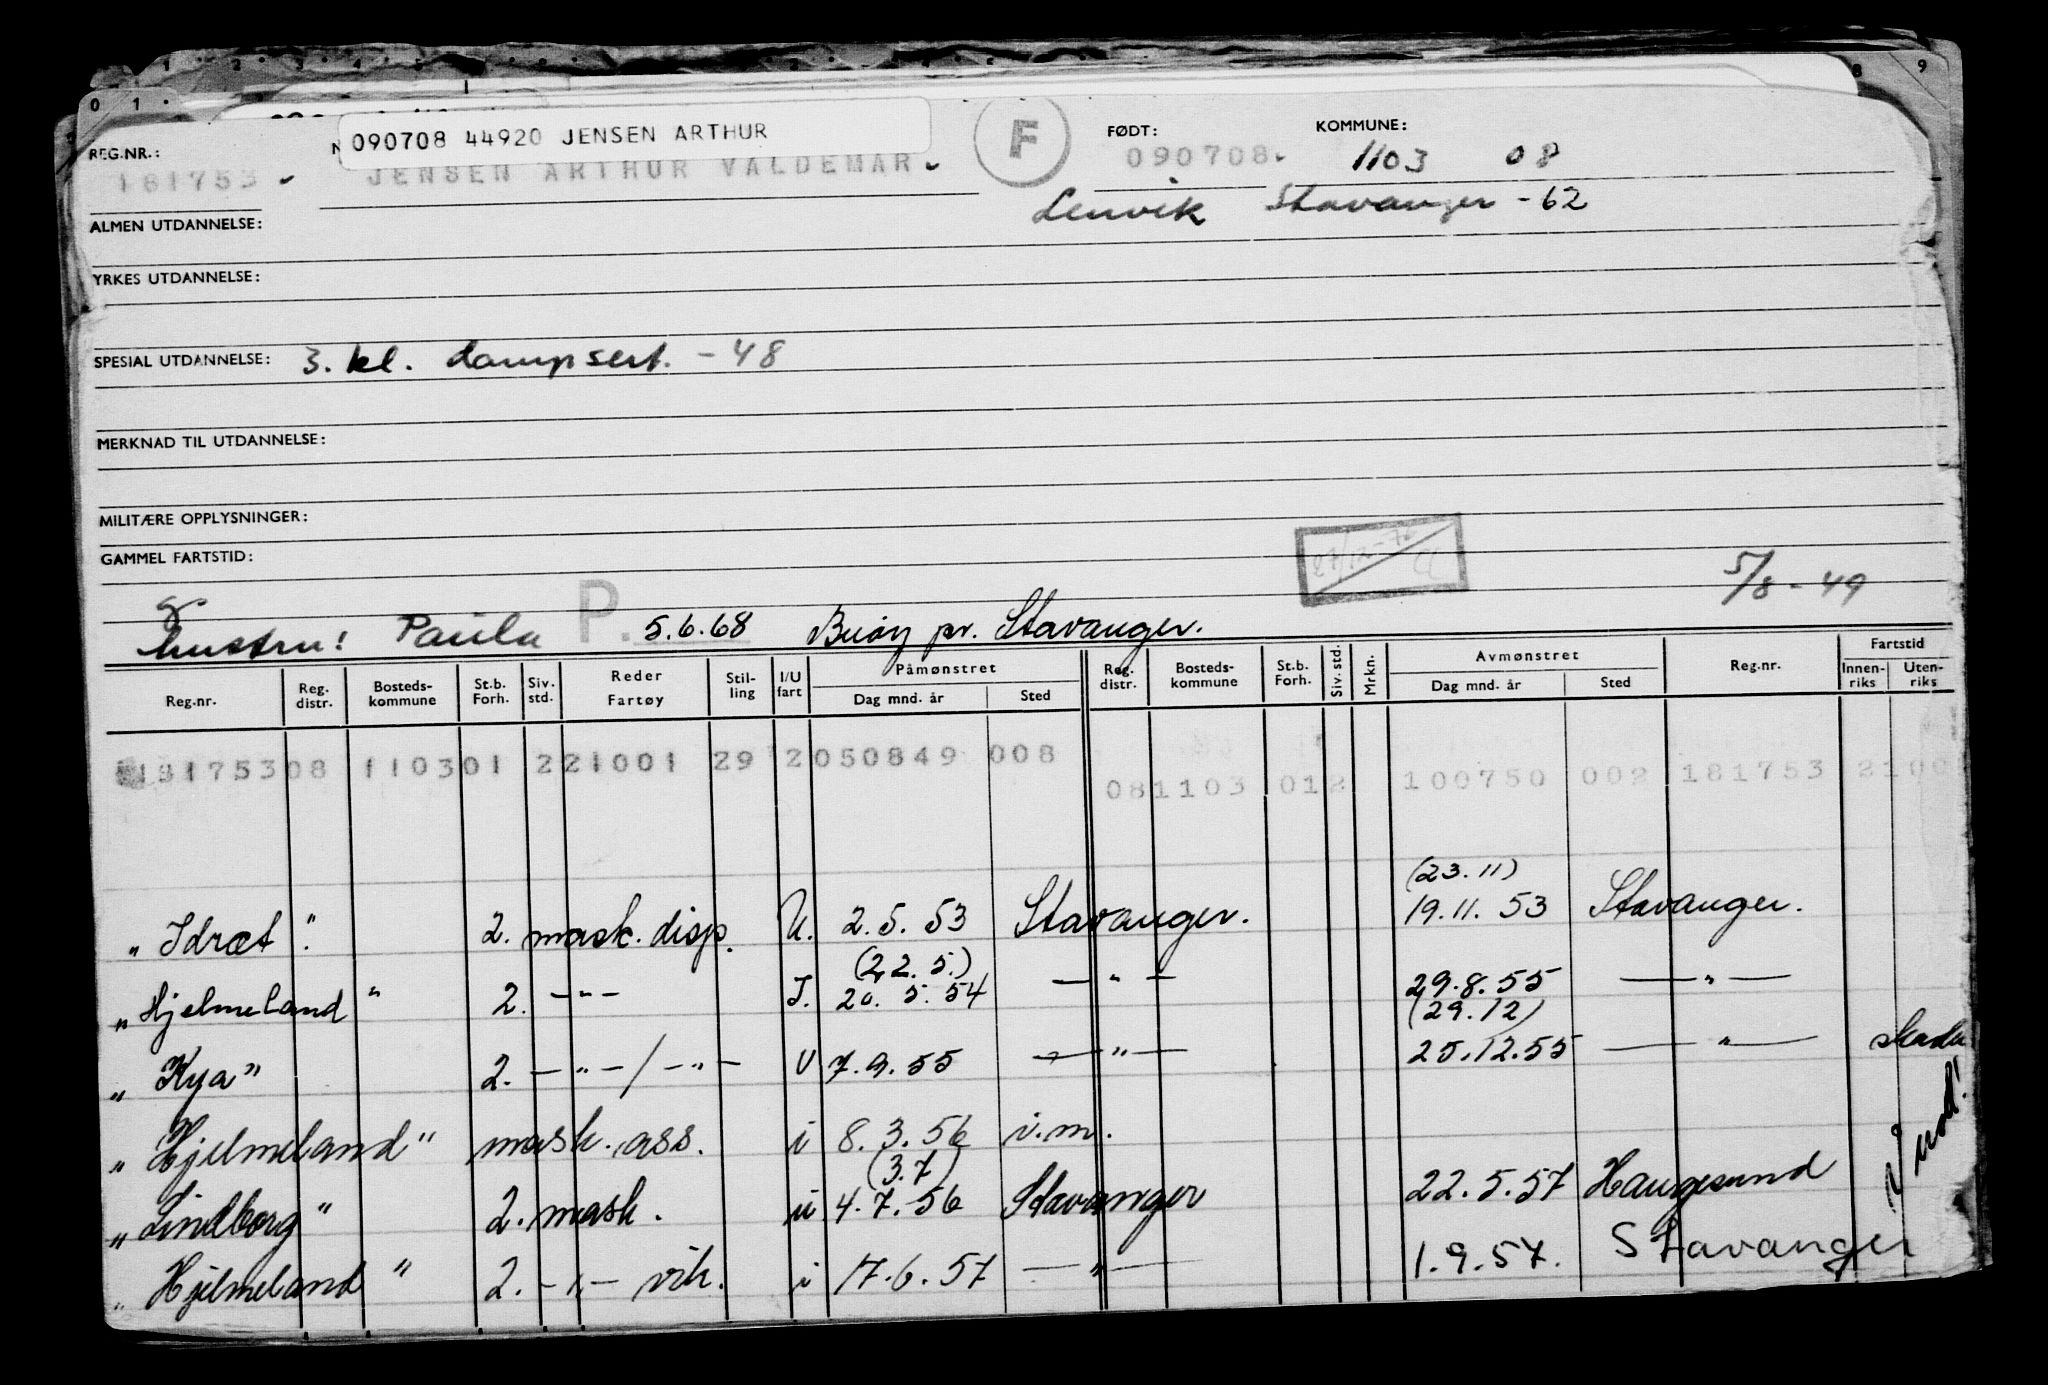 090708 44920 JENSEN ARTHUR
REG.NR.: FØDT: KOMMUNE:
181753 JENSEN ARTHUR VALDEMAR F 090708 1103 08
Lenvik Stavanger -62
ALMEN UTDANNELSE:
YRKES UTDANNELSE:
SPESIAL UTDANNELSE: 3. kl. dampsert. -48
MERKNAD TIL UTDANNELSE:
MILITÆRE OPPLYSNINGER:
GAMMEL FARTSTID:
5/8-49
hustru: Paula P. 5.6.68 Buøy pr. Stavanger.
Reg.nr. Reg. distr. Bosteds-kommune St.b. Forh. Siv. std. Reder Fartøy Stil-ling I/U fart Påmønstret Dag mnd. år Sted Reg. distr. Bosteds-kommune St.b. Forh. Siv. std. Mrkn. Avmønstret Dag mnd. år Sted Reg.nr. Fartstid Innen-riks Uten-riks
18175308 110301 221001 29 2050849 008 081103 012 100750 002 181753 2100
(23.11)
"Idræt". 2. mask. disp. U. 2.5.53 Stavanger. 19.11.53 Stavanger.
(22.5.)
"Hjelmeland" 2. -"- I. 20.5.54 -"- 29.8.55 -"-
(29.12)
"Kya" 2. -"-/-"- U 7.9.55 -"- 25.12.55 -"-
"Hjelmeland" mask. ass. i 8.3.56 i.m.
(3.7)
"Lindborg" 2. mask. u 4.7.56 Stavanger 22.5.57 Haugesund
"Hjelmeland" 2. -"- vik. i 17.6.57 -"- 1.9.57. Stavanger